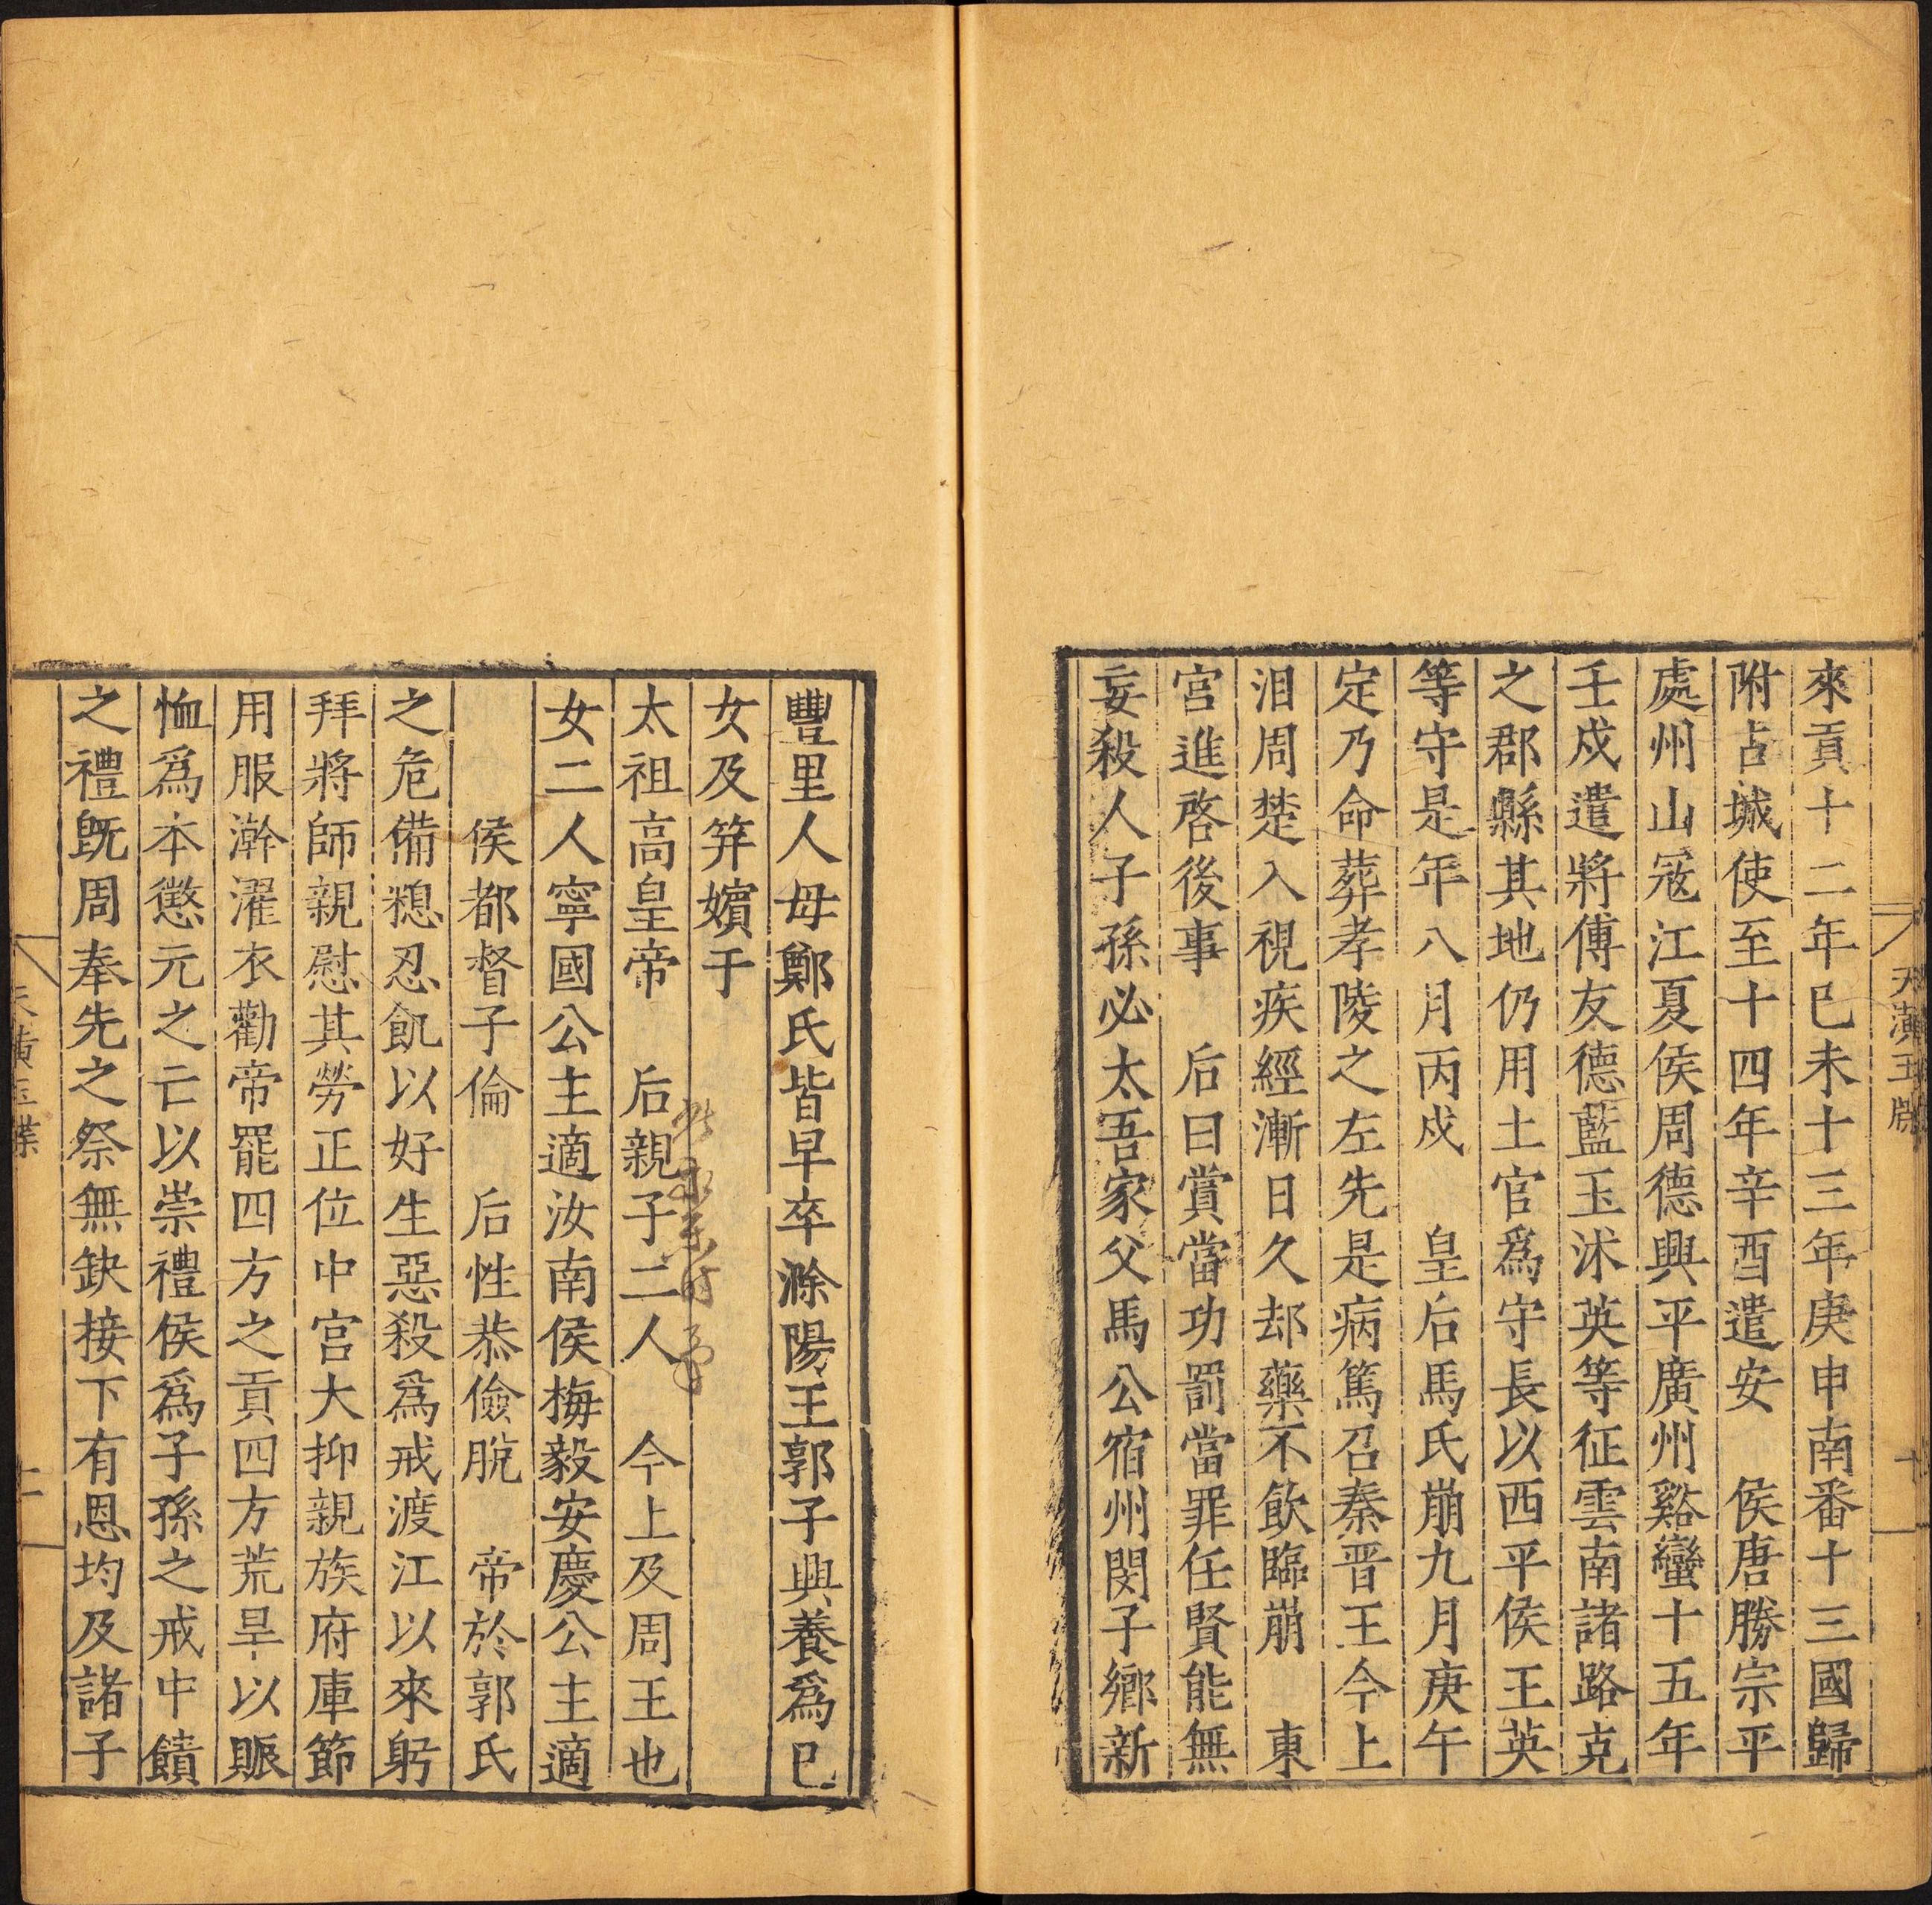 來貢十二年巳未十三年庚申南番十三國歸
附占城使至十四年辛酉遣安　侯唐勝宗平
處州山冦江夏侯周德興平廣州谿蠻十五年
壬戍遣將傅友德藍玉沭英等征雲南諸路克
之郡縣其地仍用土官爲守長以西平侯王英
等守是年八月丙戍　皇后馬氏崩九月庚午
定乃命葬孝陵之左先是病篤召秦晋王今上
泪周楚入視疾經漸日久却藥不飲臨崩　東
宮進啓後事　后曰賞當功罰當罪任賢能無
妄殺人子孫必太吾家父馬公宿州閔子鄉新
天潢玉牒
十
豐里人母鄭氏皆早卒滁陽王郭子興養爲巳
女及笄嬪于
太祖高皇帝　后親子二人　今上及周王也
女二人寧國公主適汝南侯梅毅安慶公主適
　侯都督子倫　后性恭儉脫　帝於郭氏
之危備糗忍飢以好生惡殺爲戒渡江以來躬
拜將師親慰其勞正位中宮大抑親族府庫節
用服澣濯衣勸帝罷四方之貢四方荒旱以賑
恤爲本懲元之亡以崇禮侯爲子孫之戒中饋
之禮旣周奉先之祭無缺接下有恩均及諸子
天潢玉牒